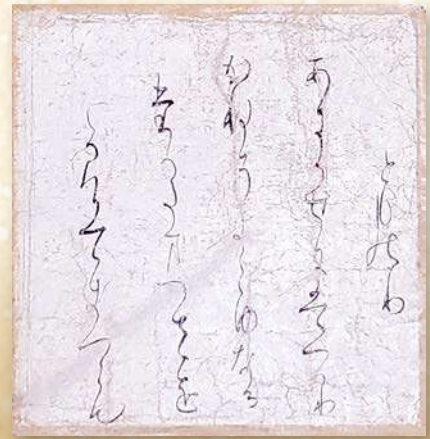 とものり
あきかせにはつかり
かねそきこゆなる
たかたまつさを
かけてきつらん